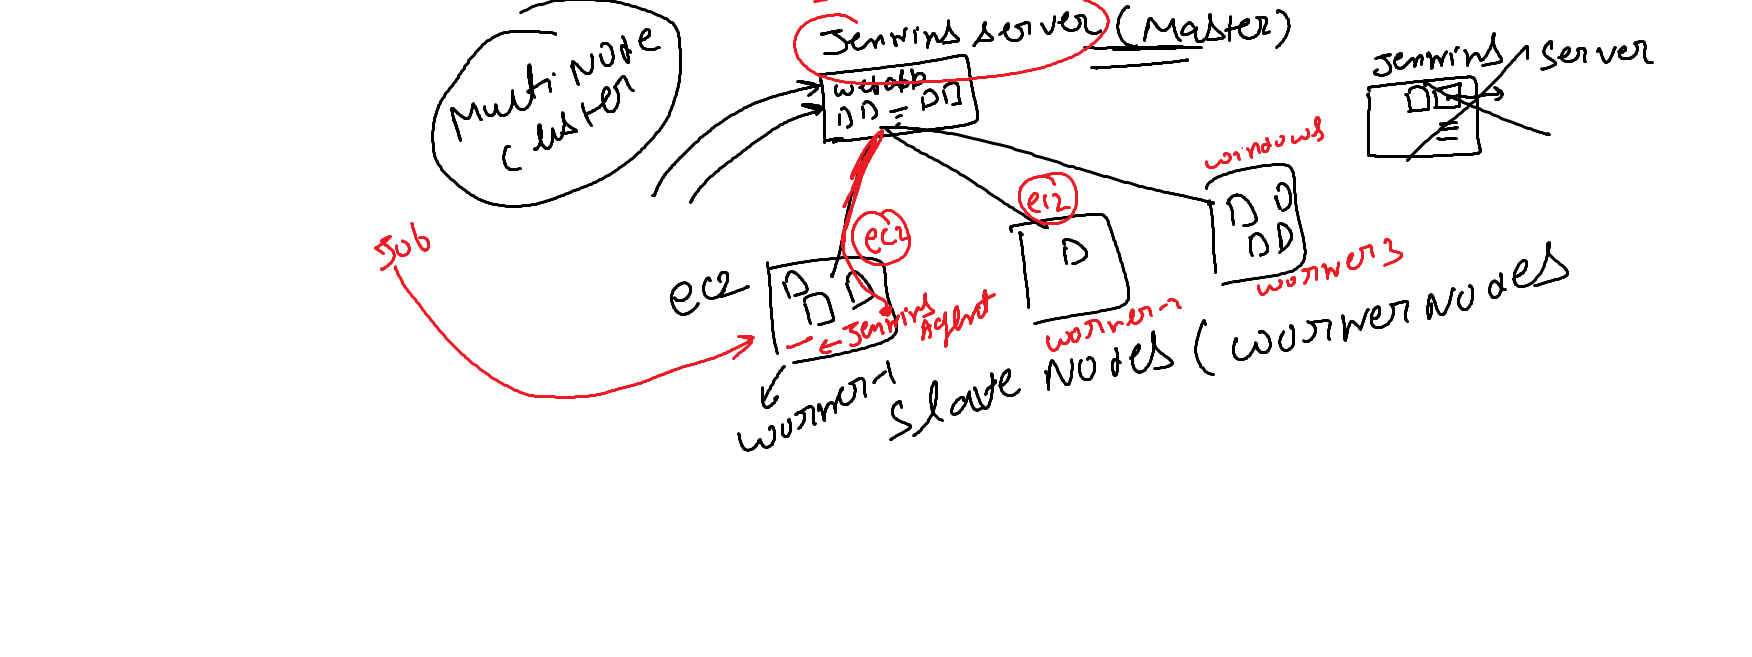 Multi Node
Cluster
Jenkins server (Master)
webapp
Jenkins server
windows
Job
ec2
ec2
ec2
worker 3
Jenkins
Agent
worker-2
worker-1
Slave Nodes (worker Nodes